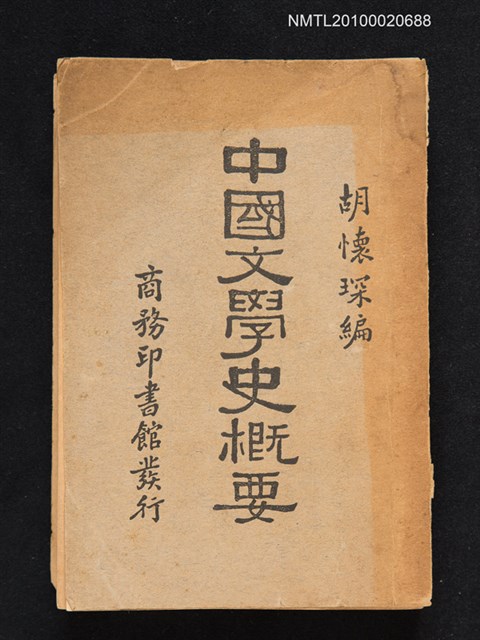 NMTL20100020688
胡懷琛編
中國文學史概要
商務印書館發行